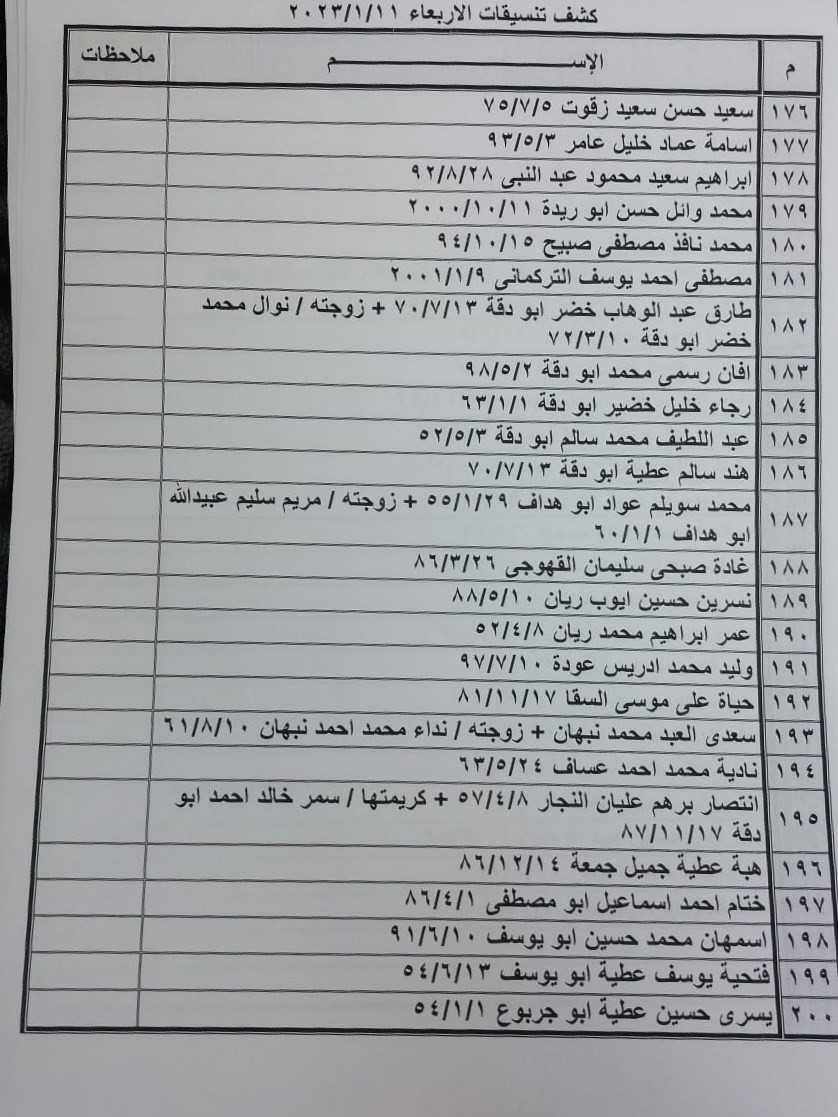 كشف تنسيقات الاربعاء ٢٠٢٣/١/١١
م الإســــــم ملاحظات
١٧٦ سعيد حسن سعيد زقوت ٧٥/٧/٥
١٧٧ اسامة عماد خليل عامر ٩٣/٥/٣
١٧٨ ابراهيم سعيد محمود عبد النبى ٩٢/٨/٢٨
١٧٩ محمد وائل حسن ابو ريدة ٢٠٠٠/١٠/١١
١٨٠ محمد نافذ مصطفى صبيح ٩٤/١٠/١٥
١٨١ مصطفى احمد يوسف التركمانى ٢٠٠١/١/٩
١٨٢ طارق عبد الوهاب خضر ابو دقة ٧٠/٧/١٣ + زوجته / نوال محمد
خضر ابو دقة ٧٢/٣/١٠
١٨٣ افان رسمى محمد ابو دقة ٩٨/٥/٢
١٨٤ رجاء خليل خضير ابو دقة ٦٣/١/١
١٨٥ عبد اللطيف محمد سالم ابو دقة ٥٢/٥/٣
١٨٦ هند سالم عطية ابو دقة ٧٠/٧/١٣
١٨٧ محمد سويلم عواد ابو هداف ٥٥/١/٢٩ + زوجته / مريم سليم عبيدالله
ابو هداف ٦٠/١/١
١٨٨ غادة صبحى سليمان القهوجى ٨٦/٣/٢٦
١٨٩ نسرين حسين ايوب ريان ٨٨/٥/١٠
١٩٠ عمر ابراهيم محمد ريان ٥٢/٤/٨
١٩١ وليد محمد ادريس عودة ٩٧/٧/١٠
١٩٢ حياة على موسى السقا ٨١/١١/١٧
١٩٣ سعدى العبد محمد نبهان + زوجته / نداء محمد احمد نبهان ٦١/٨/١٠
١٩٤ نادية محمد احمد عساف ٦٣/٥/٢٤
١٩٥ انتصار برهم عليان النجار ٥٧/٤/٨ + كريمتها / سمر خالد احمد ابو
دقة ٨٧/١١/١٧
١٩٦ هبة عطية جميل جمعة ٨٦/١٢/١٤
١٩٧ ختام احمد اسماعيل ابو مصطفى ٨٦/٤/١
١٩٨ اسمهان محمد حسين ابو يوسف ٩١/٦/١٠
١٩٩ فتحية يوسف عطية ابو يوسف ٥٤/٦/١٣
٢٠٠ يسرى حسين عطية ابو جربوع ٥٤/١/١